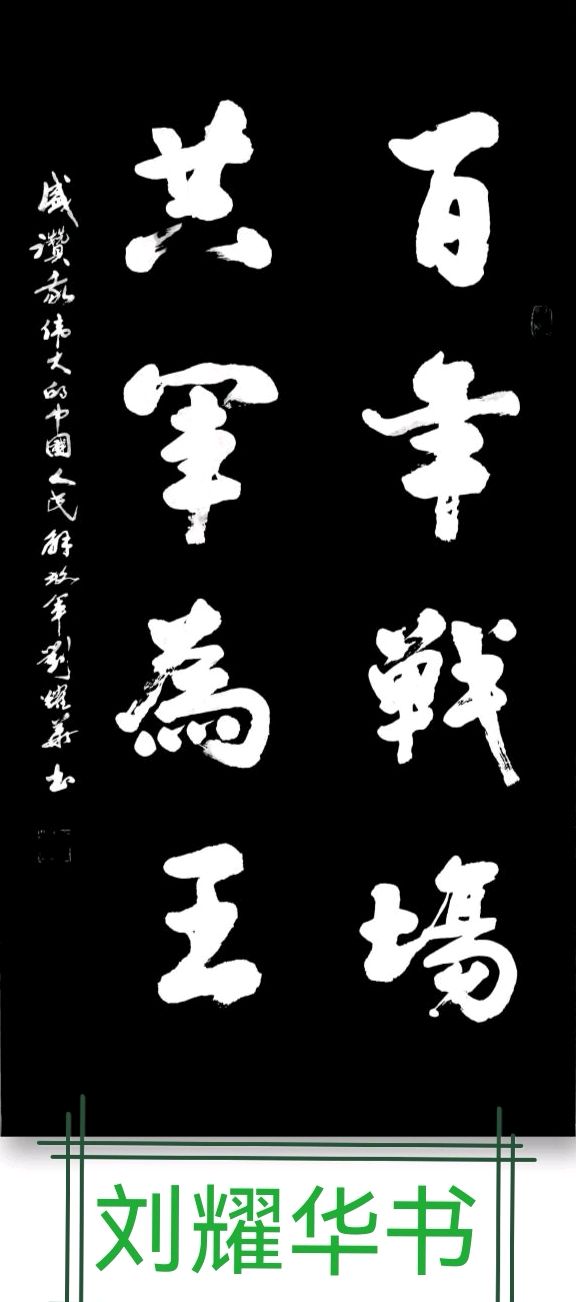 百年戰場
共軍為王
盛讚我伟大的中國人民解放军劉耀華书
刘耀华书